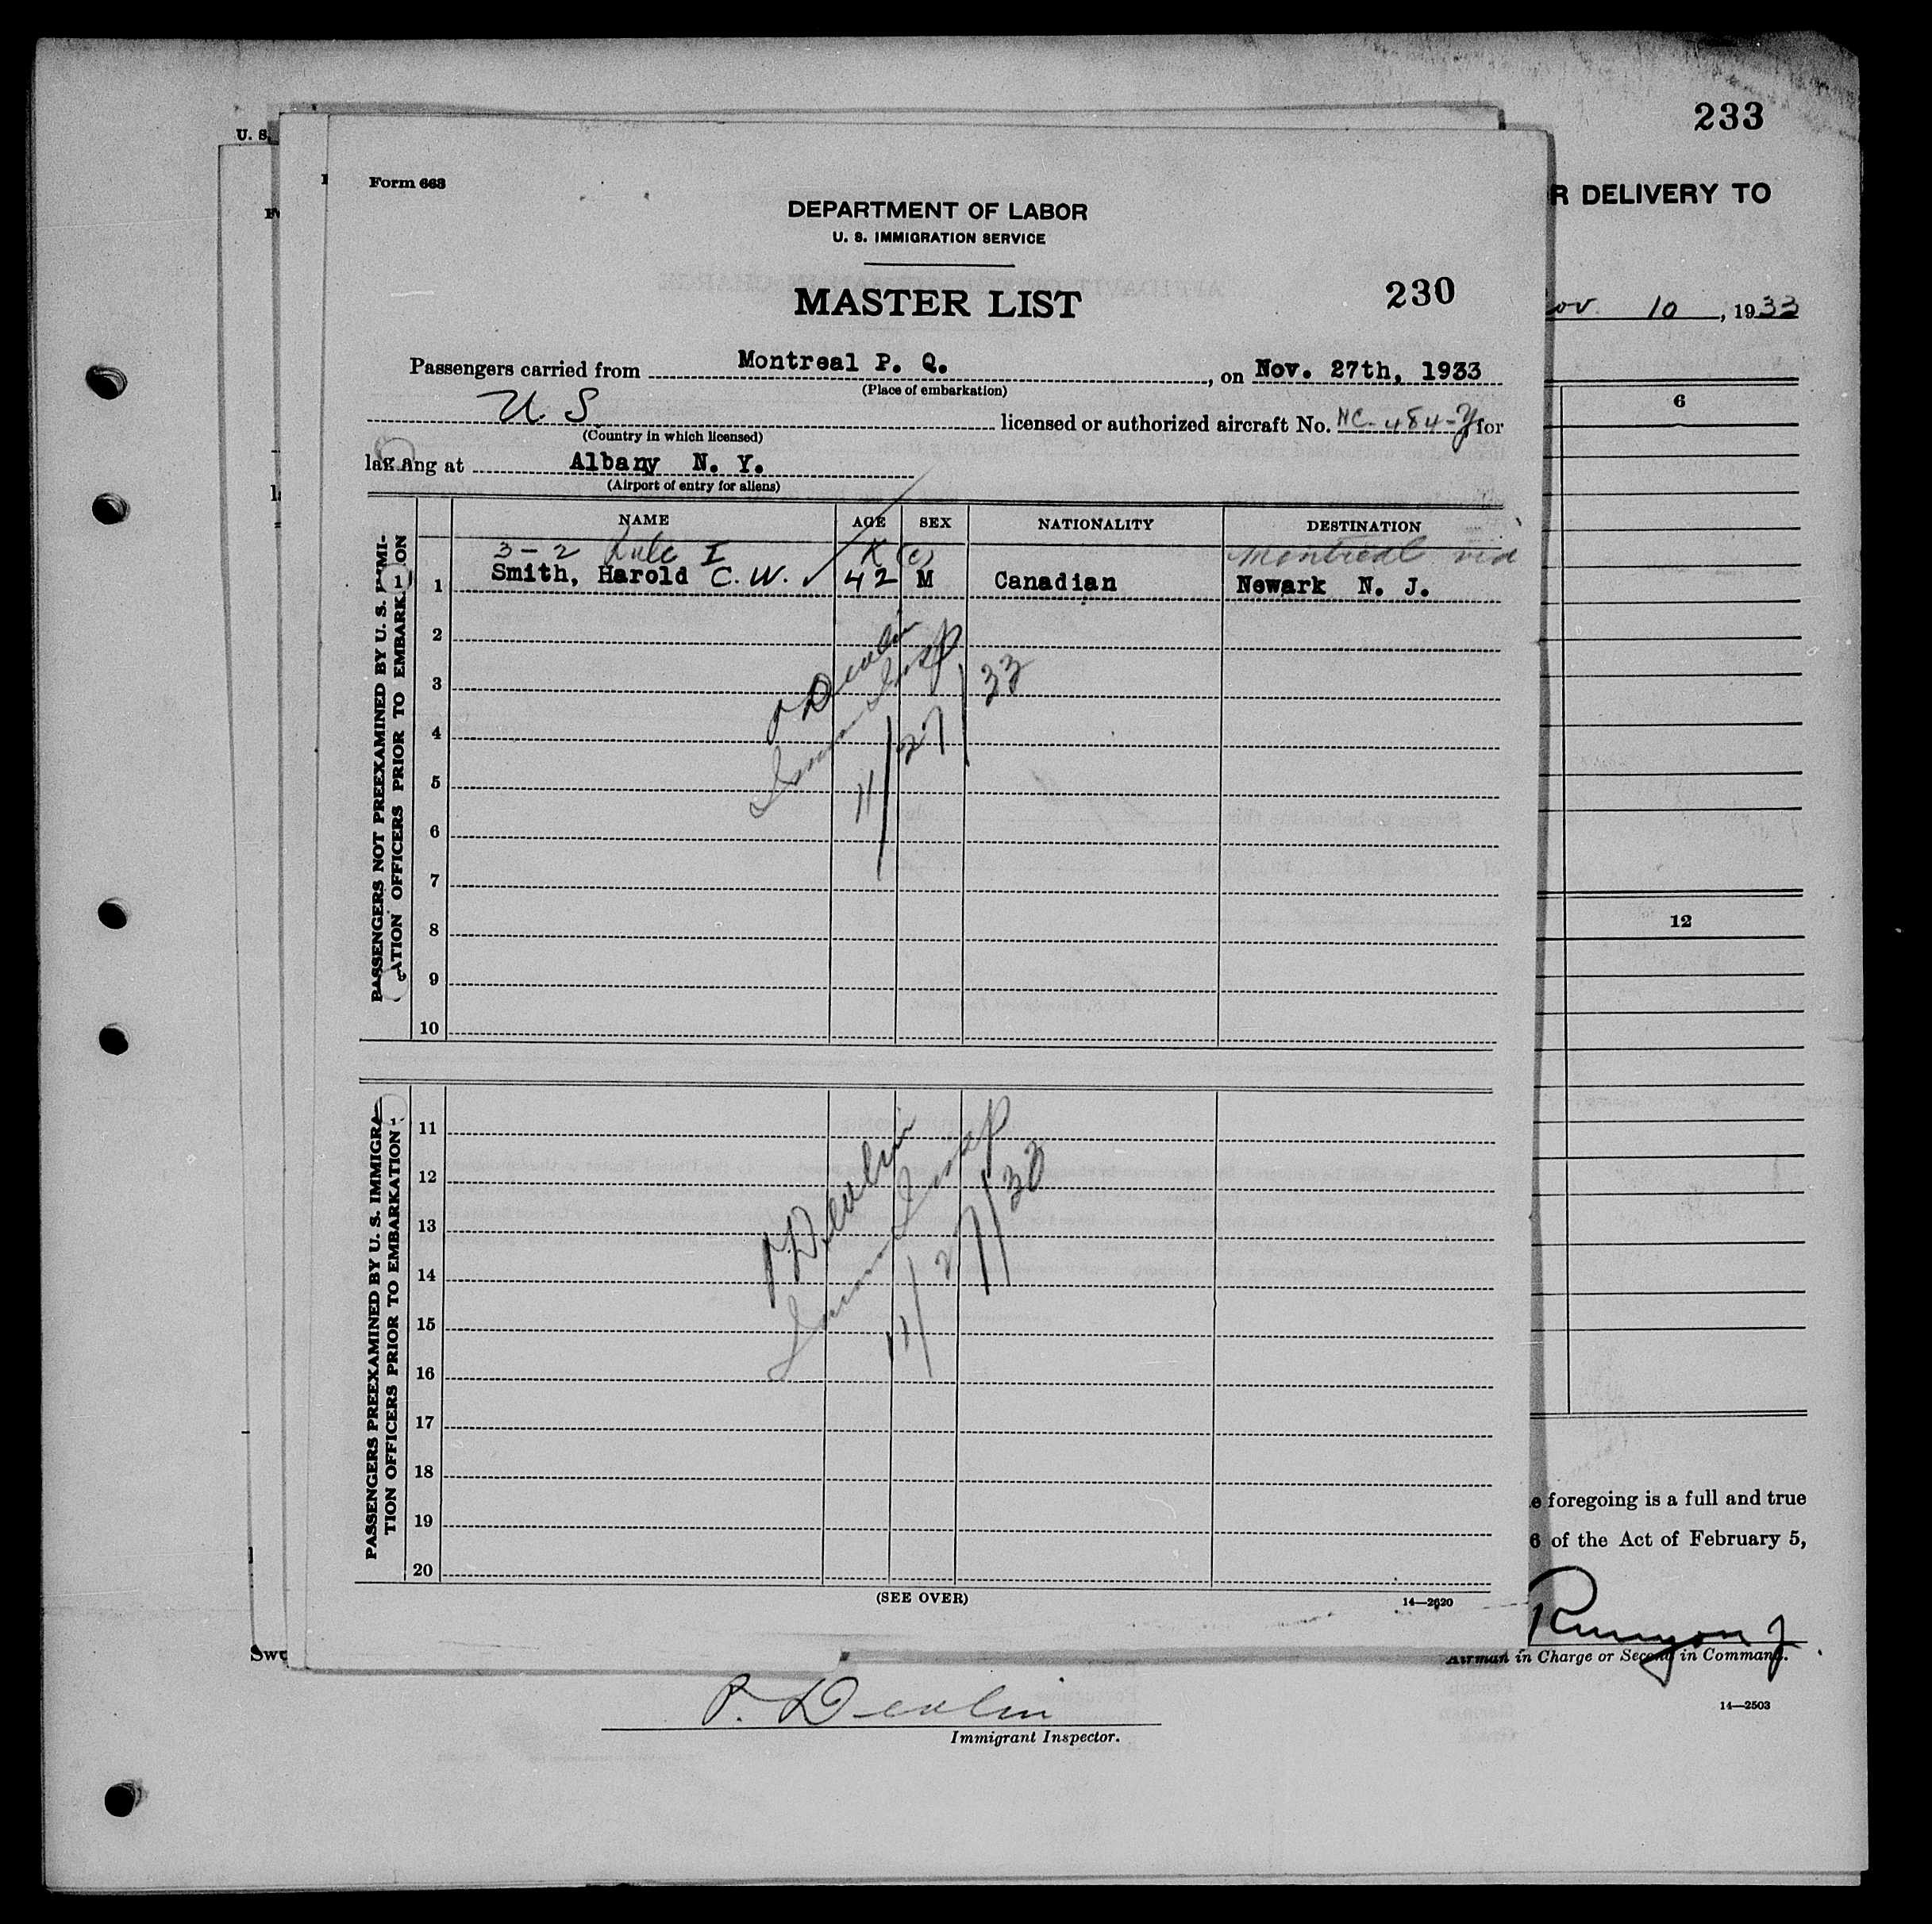 233
R DELIVERY TO
ov. 10, 1933
6
12
e foregoing is a full and true
6 of the Act of February 5,
Runyon Jr.
Airman in Charge or Second in Command.
14—2503
U. S.
Form 663
DEPARTMENT OF LABOR
U. S. IMMIGRATION SERVICE
MASTER LIST
230
Passengers carried from Montreal P. Q. , on Nov. 27th, 1933
(Place of embarkation)
U S licensed or authorized aircraft No. NC-484-Y for
(Country in which licensed)
landing at Albany N. Y.
(Airport of entry for aliens)
NAME AGE SEX NATIONALITY DESTINATION
3-2 Rule I K (c) Montreal via
1 Smith, Harold C. W. ✓ 42 M Canadian Newark N. J.
2
3
4
5
6
7
8
9
10
PASSENGERS NOT PREEXAMINED BY U. S. IMMI-
ATION OFFICERS PRIOR TO EMBARK ON
1
P Devlin
Imm Insp
11/27/33
11
12
13
14
15
16
17
18
19
20
PASSENGERS PREEXAMINED BY U. S. IMMIGRA-
TION OFFICERS PRIOR TO EMBARKATION
P Devlin
Imm Insp
11/27/33
(SEE OVER)
14—2620
Swo
P. Devlin
Immigrant Inspector.